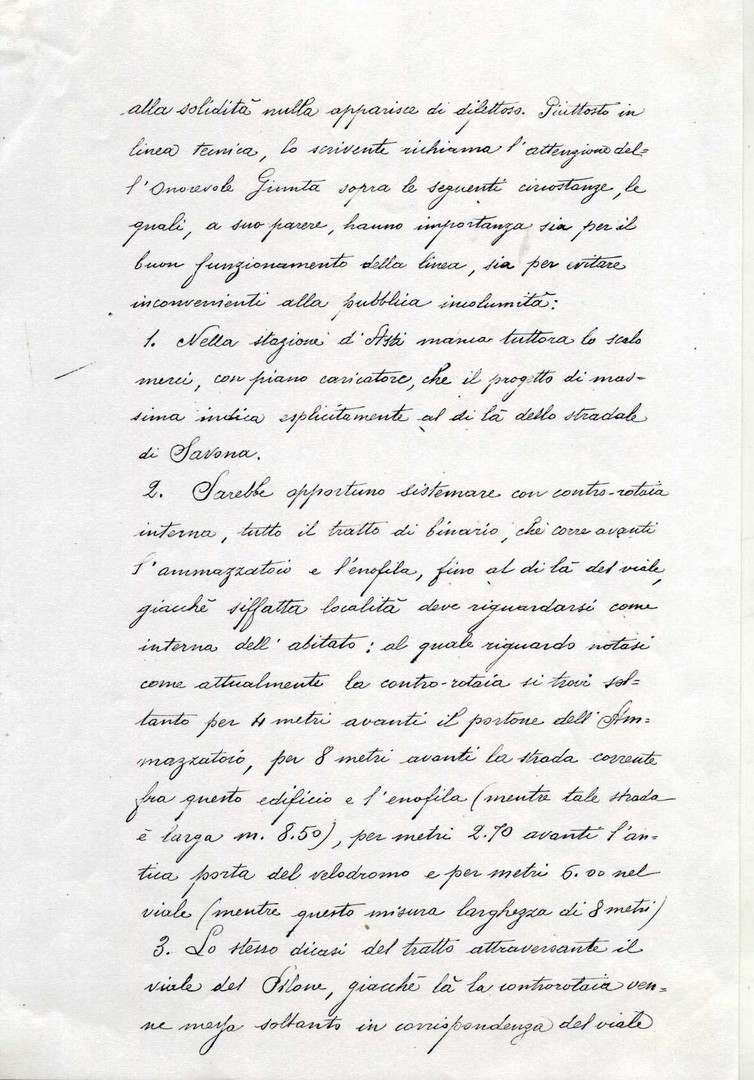 alla solidità nulla apparisce di difettoso. Piuttosto in
linea tecnica, lo scrivente richiama l'attenzione del=
l'Onorevole Giunta sopra le seguenti circostanze, le
quali, a suo parere, hanno importanza sia per il
buon funzionamento della linea, sia per evitare
inconvenienti alla pubblica incolumità:
1. Nella stazione d'Asti manca tuttora lo scalo
merci, con piano caricatore, che il progetto di mas-
sima indica esplicitamente al di là dello stradale
di Savona.
2. Sarebbe opportuno sistemare con contro-rotaia
interna, tutto il tratto di binario, che corre avanti
l'ammazzatoio e l'enofila, fino al di là del viale,
giacchè siffatta località deve riguardarsi come
interna dell'abitato; al quale riguardo notasi
come attualmente la contro-rotaia si trovi sol=
tanto per 4 metri avanti il portone dell'Am=
mazzatoio, per 8 metri avanti la strada corrente
fra questo edificio e l'enofila (mentre tale strada
è larga m. 8.50), per metri 2.70 avanti l'an=
tica porta del velodromo e per metri 6.00 nel
viale (mentre questo misura larghezza di 8 metri)
3. Lo stesso dicasi del tratto attraversante il
viale del Pilone, giacchè là la controrotaia ven=
ne messa soltanto in corrispondenza del viale